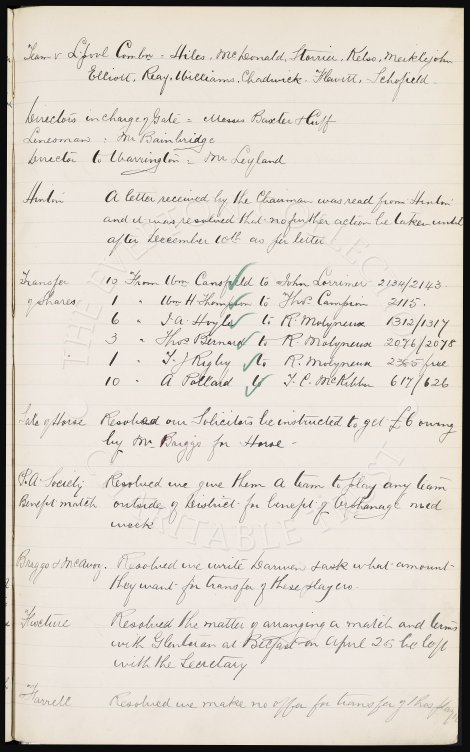 Team v L'pool Combn = Hiles, McDonald, Storrier, Kelso, Meiklejohn
Elliott, Reay, Williams, Chadwick, Hewitt, Schofield.
Directors in charge of Gate = Messrs Baxter & Cuff
Linesman = Mr Bainbridge
Director to Warrington = Mr Leyland
Hinton A letter received by the Chairman was read from Hinton
and it was resolved that no further action be taken until
after December 10th as per letter
Transfer 10 From Wm Cansfield to John Lorrimer 2134/2143.
of Shares 1 " Wm H. Thompson to Thos Campion 2115.
6 " J. A. Hoyle to R. Molyneux 1312/1317
3 " Thos Bernard to R. Molyneux 2076/2078
1 " T. J. Rigby to R. Molyneux
10 " A Pollard to T. C. McKibbin 617/626
Sale of Horse Resolved our Solicitors be instructed to get £6 owing
by Mr Briggs for Horse -
P. A. Society Resolved we give them a team to play any team
Benefit match outside of District for benefit of Orphanage mid
week
Briggs & McAvoy. Resolved we write Darwen & ask what amount
they want for transfer of these players.
Fixture Resolved the matter of arranging a match and terms
with Glentoran at Belfast on April 25 be left
with the Secretary
Farrell Resolved we make no offer for transfer of this player